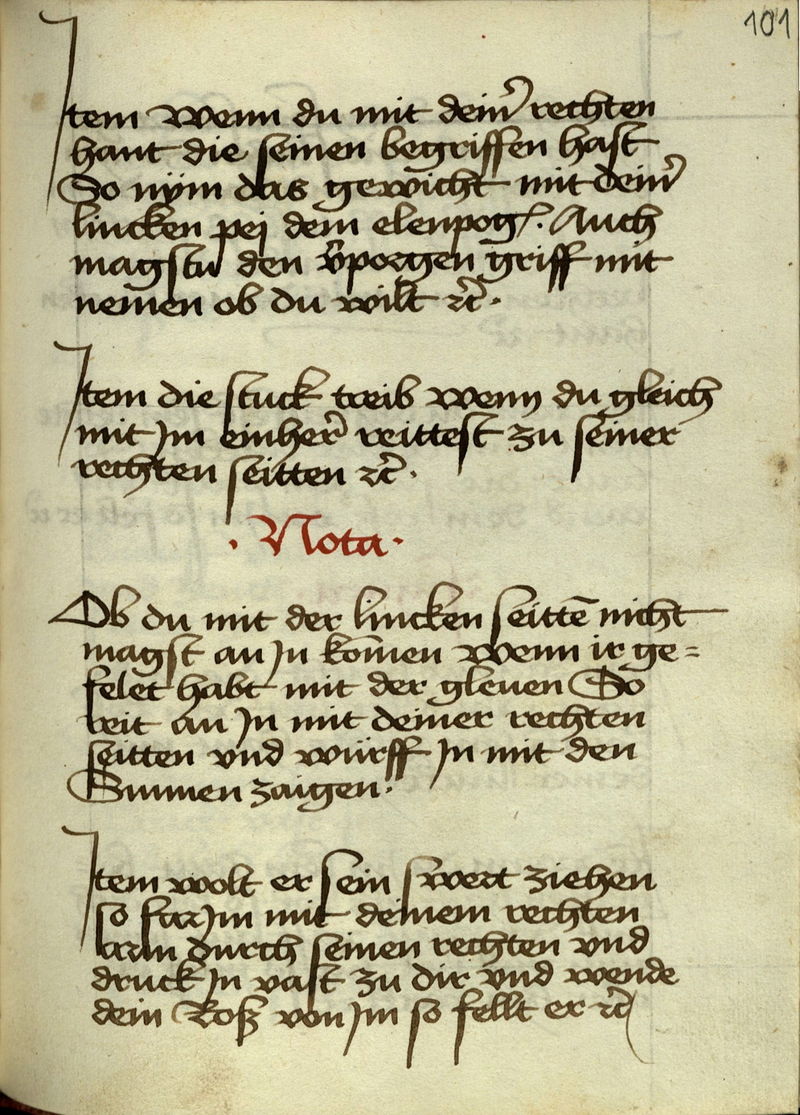 101
Item wenn du mit deinr̃ rechten
hant die seinen begriffen hast
So nÿm das gewicht mit deinr̃
lincken pej dem elenpog. Auch
magstu den v̾porgen griff mit
nemen ob du wilt ꝛc̃.
Item die stuck treib wenn du gleich
mit Im einher̃ reittest zu seiner
rechten seitten ꝛc̃.
· Nota ·
Ob du mit der lincken seittē nicht
magst an In kom̄en wenn ir ge=
felet habt mit der gleuen So
reit an In mit deiner rechten
seitten vnd würff In mit den
Sunnen zaigen.
Item wolt er sein swert ziehen
so far Im mit deinem rechten
arm durch seinen rechten vnd
druck In vast zu dir vnd wende
dein Roß von Im so fellt er ꝛc̃